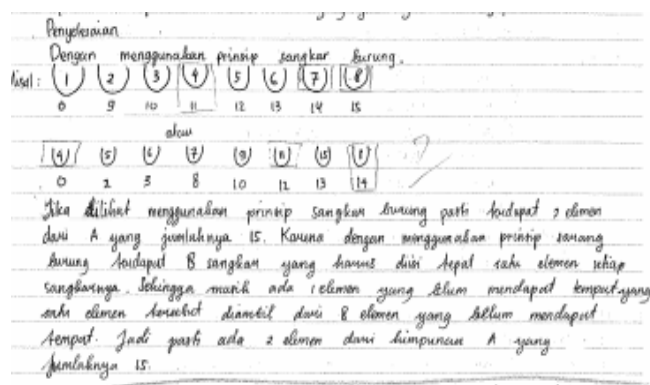 Penyelesaian
Dengan menggunakan prinsip sangkar burung.
Misal : (1) (2) (3) (4) (5) (6) (7) (8)
0 9 10 11 12 13 14 15
atau
(4) (5) (6) (7) (9) (11) (15) (8)
0 2 3 8 10 12 13 14
Jika dilihat menggunakan prinsip sangkar burung pasti terdapat 2 elemen
dari A yang jumlahnya 15. Karena dengan menggunakan prinsip sarang
burung terdapat 8 sangkar yang harus diisi tepat satu elemen setiap
sangkarnya. Sehingga masih ada 1 elemen yang belum mendapat tempat yang
satu elemen tersebut diambil dari 8 elemen yang belum mendapat
tempat. Jadi pasti ada 2 elemen dari himpunan A yang
jumlahnya 15.